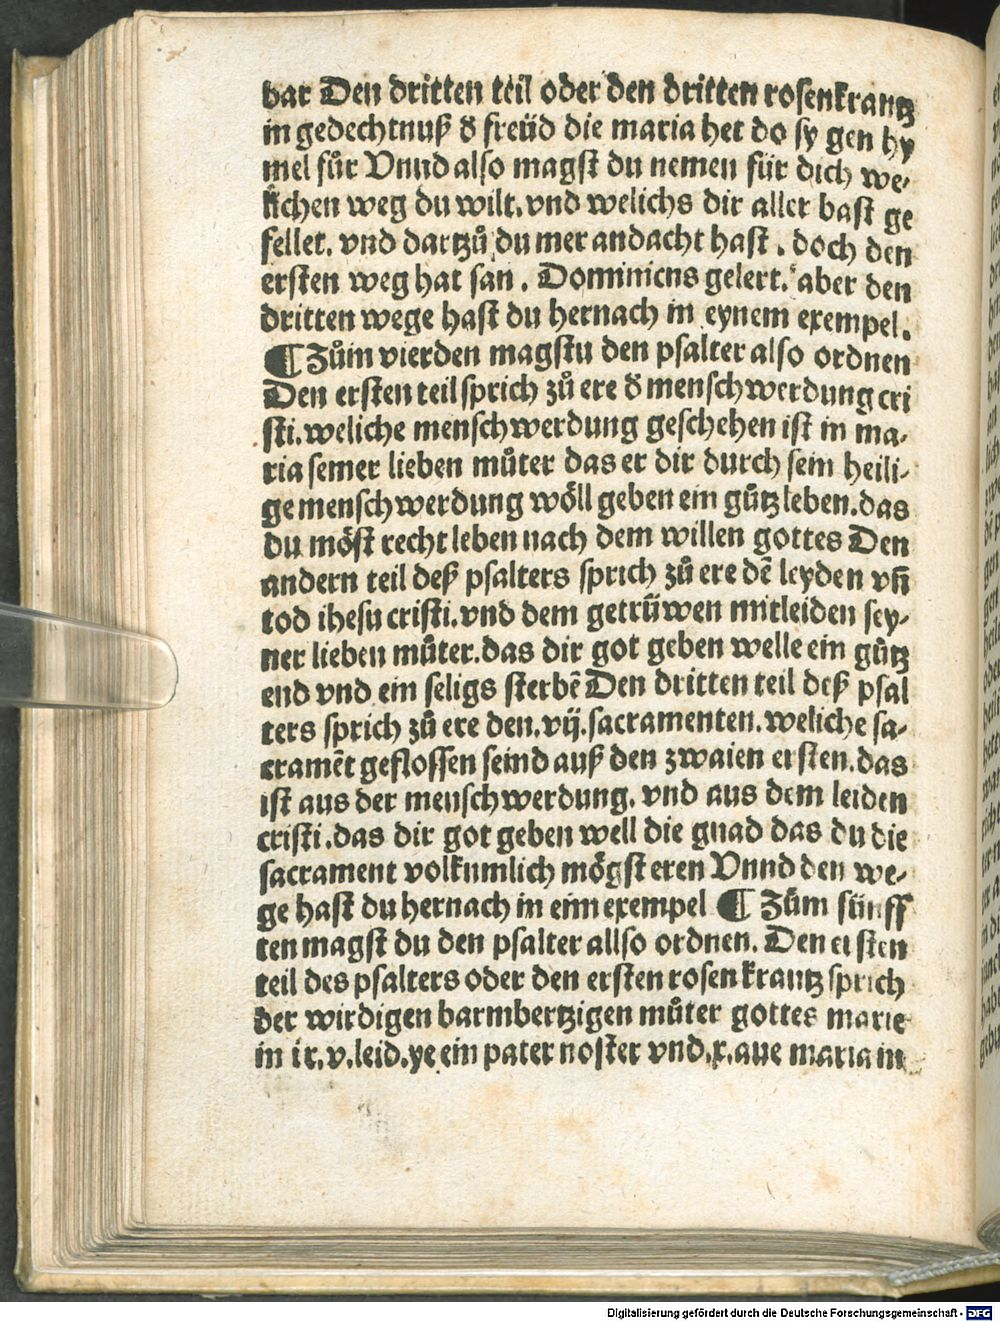 bar Den dritten teil oder den dritten rosenkrantz
in gedechtnuß ð freüd die maria het do sy gen hy
mel fůr Vnnd also magst du nemen für dich we-
lichen weg du wilt. vnd welichs dir aller bast ge
fellet. vnd dartzů du mer andacht hast. doch den
ersten weg hat san. Dominicus gelert. aber den
dritten wege hast du hernach in eynem exempel.
¶ Zům vierden magstu den psalter also ordnen
Den ersten teil sprich zů ere ð menschwerdung cri
sti. weliche menschwerdung geschehen ist in ma-
ria seiner lieben můter das er dir durch sein heili-
ge menschwerdung wöll geben ein gůtz leben. das
du möst recht leben nach dem willen gottes Den
andern teil deß psalters sprich zů ere dē leyden vn̄
tod ihesu cristi. vnd dem getrüwen mitleiden sey-
ner lieben můter. das dir got geben welle ein gůtz
end vnd ein seligs sterbē Den dritten teil deß psal
ters sprich zů ere den. vij. sacramenten. weliche sa-
cramēt geflossen seind auß den zwaien ersten. das
ist aus der menschwerdung. vnd aus dem leiden
cristi. das dir got geben well die gnad das du die
sacrament volkumlich mögst eren Vnnd den we-
ge hast du hernach in eim exempel ¶ Zům fünff
ten magst du den psalter allso ordnen. Den ersten
teil des psalters oder den ersten rosenkrantz sprich
der wirdigen barmhertzigen můter gottes marie
in ir. v. leid. ye ein pater noster vnd. x. aue maria in
Digitalisierung gefördert durch die Deutsche Forschungsgemeinschaft - DFG